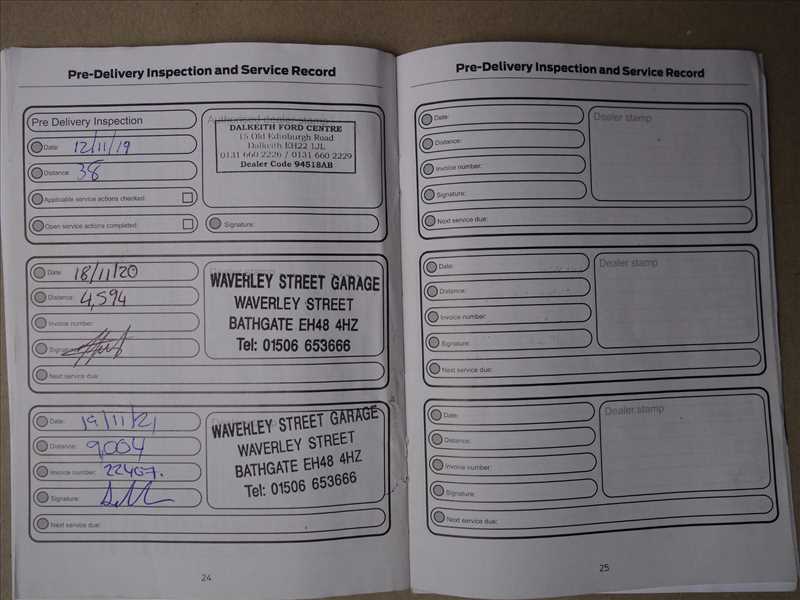 Pre-Delivery Inspection and Service Record
Pre Delivery Inspection
Date: 12/11/19
Distance: 38
Applicable service actions checked:
Open service actions completed:
Authorised dealer stamp:
DALKEITH FORD CENTRE
15 Old Edinburgh Road
Dalkeith EH22 1JL
0131 660 2226 / 0131 660 2229
Dealer Code 94518AB
Signature:
Date: 18/11/20
Distance: 4,594
Invoice number:
Signature:
Next service due:
WAVERLEY STREET GARAGE
WAVERLEY STREET
BATHGATE EH48 4HZ
Tel: 01506 653666
Date: 19/11/21
Distance: 9004
Invoice number: 22407.
Signature:
Next service due:
WAVERLEY STREET GARAGE
WAVERLEY STREET
BATHGATE EH48 4HZ
Tel: 01506 653666
24
Pre-Delivery Inspection and Service Record
Date:
Distance:
Invoice number:
Signature:
Next service due:
Dealer stamp
Date:
Distance:
Invoice number:
Signature:
Next service due:
Dealer stamp
Date:
Distance:
Invoice number:
Signature:
Next service due:
Dealer stamp
25